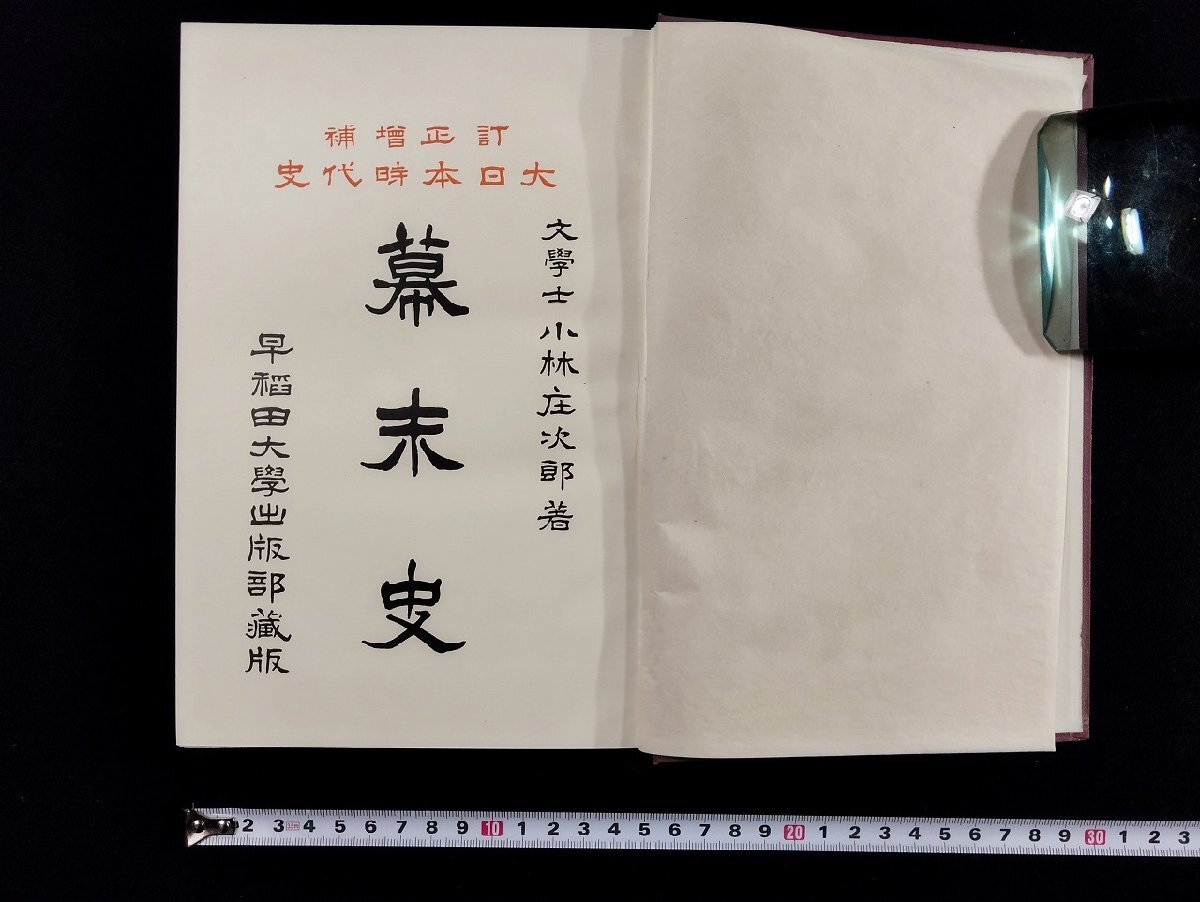 補增正訂
史代時本日大
文學士小林庄次郎著
幕末史
早稻田大學出版部藏版
2 3 4 5 6 7 8 9 10 1 2 3 4 5 6 7 8 9 20 1 2 3 4 5 6 7 8 9 30 1 2 3